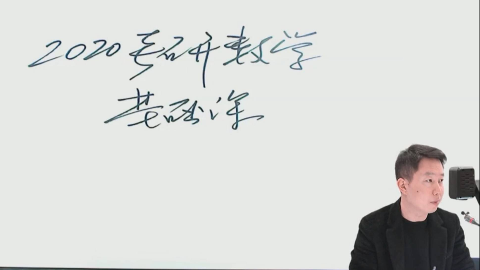 2020考研数学
基础课